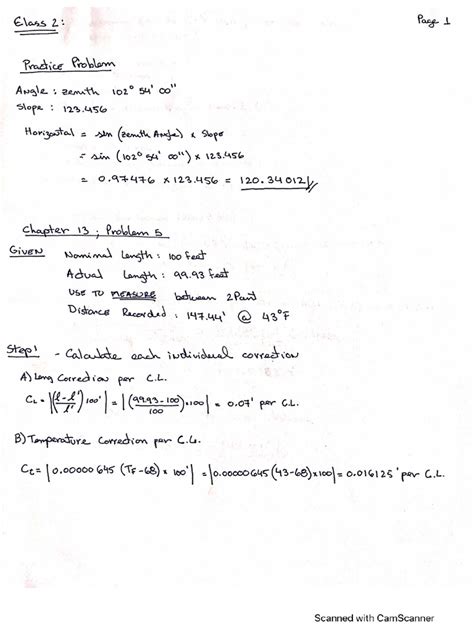 Class 2:
Page 1
Practice Problem
Angle : zenith 102° 54' 00"
Slope : 123.456
Horizontal = sin (zenith Angle) x Slope
= sin (102° 54' 00") x 123.456
= 0.97476 x 123.456 = 120.34012
Chapter 13 ; Problem 5
GIVEN Nominal Length : 100 feet
Actual Length : 99.93 feet
USE TO MEASURE between 2 Point
Distance Recorded : 147.44' @ 43°F
Step 1 - Calculate each individual correction
A) Long Correction per C.L.
CL = |(l-l'/l')100'| = |(99.93-100)/100 ×100| = 0.07' per C.L.
B) Temperature Correction per C.L.
Ct = |0.00000645 (TF-68) x 100'| = |0.00000645(43-68)x100| = 0.016125' per C.L.
Scanned with CamScanner